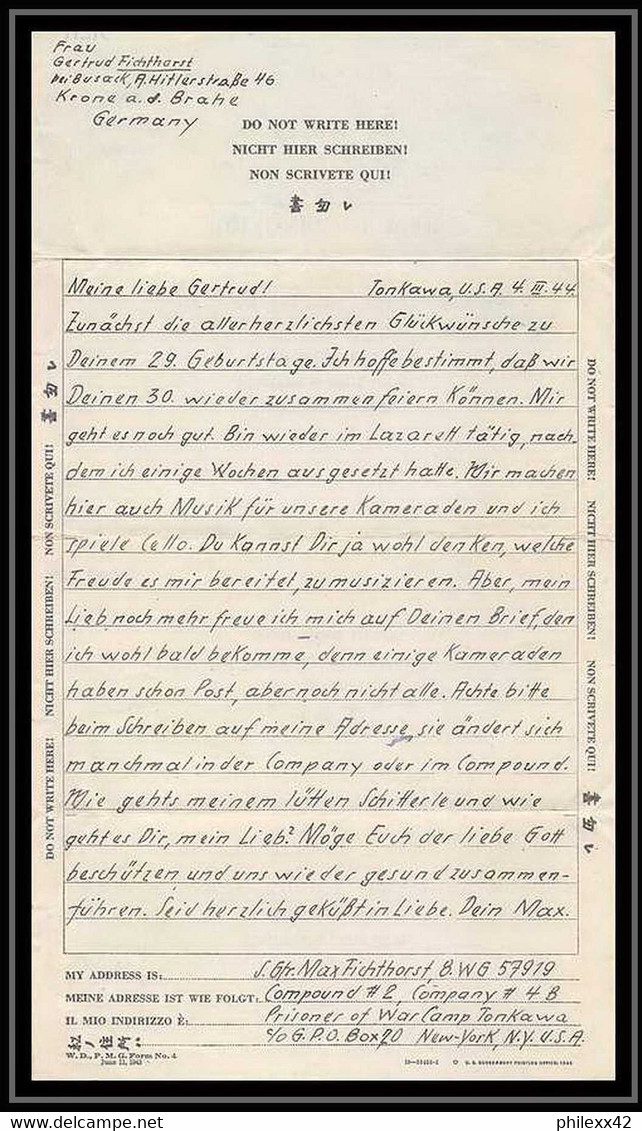 Frau
Gertrud Fichthorst
bei Busack, A. Hitlerstraße 46
Krone a. d. Brahe
Germany
DO NOT WRITE HERE!
NICHT HIER SCHREIBEN!
NON SCRIVETE QUI!
書勿レ
Meine liebe Gertrud! Tonkawa, U.S.A. 4. III. 44.
Zunächst die allerherzlichsten Glückwünsche zu
Deinem 29. Geburtstage. Ich hoffe bestimmt, daß wir
Deinen 30. wieder zusammen feiern können. Mir
geht es noch gut. Bin wieder im Lazarett tätig, nach-
dem ich einige Wochen ausgesetzt hatte. Wir machen
hier auch Musik für unsere Kameraden und ich
spiele Cello. Du kannst Dir ja wohl denken, welche
Freude es mir bereitet, zu musizieren. Aber, mein
Lieb noch mehr freue ich mich auf Deinen Brief, den
ich wohl bald bekomme, denn einige Kameraden
haben schon Post, aber noch nicht alle. Achte bitte
beim Schreiben auf meine Adresse, sie ändert sich
manchmal in der Company oder im Compound.
Wie gehts meinem lütten Schitterle und wie
geht es Dir, mein Lieb? Möge Euch der liebe Gott
beschützen und uns wieder gesund zusammen-
führen. Seid herzlich geküßt in Liebe. Dein Max.
DO NOT WRITE HERE! NICHT HIER SCHREIBEN! NON SCRIVETE QUI! 書勿レ
DO NOT WRITE HERE! NICHT HIER SCHREIBEN! NON SCRIVETE QUI! 書勿レ
MY ADDRESS IS: S. Gfr. Max Fichthorst, 8. WG 57919
MEINE ADRESSE IST WIE FOLGT: Compound #2, Company #4 B
IL MIO INDIRIZZO È: Prisoner of War Camp Tonkawa
私ノ住所ハ c/o G.P.O. Box 20 New-York, N.Y. U.S.A.
W. D., P. M. G. Form No. 4
June 12, 1943
U. S. GOVERNMENT PRINTING OFFICE: 1943
www.delcampe.net
philexx42